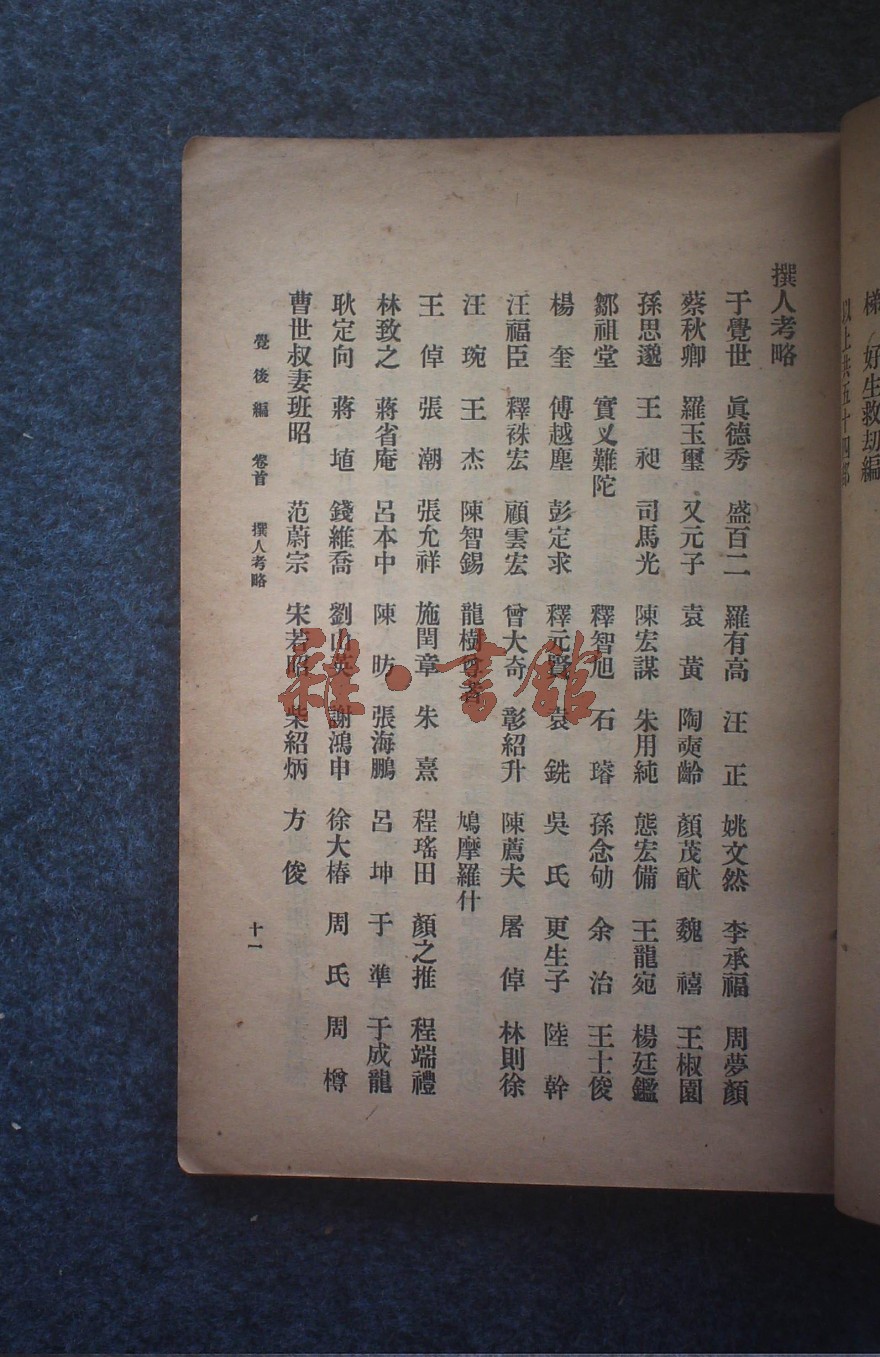 梯 好生救劫編
以上共五十四部
撰人考略
于覺世 眞德秀 盛百二 羅有高 汪正 姚文然 李承福 周夢顏
蔡秋卿 羅玉璽 又元子 袁黃 陶奭齡 顏茂猷 魏禧 王椒園
孫思邈 王昶 司馬光 陳宏謀 朱用純 熊宏備 王龍宛 楊廷鑑
鄒祖堂 實叉難陀 釋智旭 石璿 孫念劬 余治 王士俊
楊奎 傅越塵 彭定求 釋元賢 袁銑 吳氏 更生子 陸幹
汪福臣 釋祩宏 顧雲宏 曾大奇 彰紹升 陳薦夫 屠倬 林則徐
汪琬 王杰 陳智錫 龍樹尊者 鳩摩羅什
王倬 張潮 張允祥 施閏章 朱熹 程瑤田 顏之推 程端禮
林致之 蔣省庵 呂本中 陳昉 張海鵬 呂坤 于準 于成龍
耿定向 蔣埴 錢維喬 劉山英 謝鴻申 徐大椿 周氏 周樽
曹世叔妻班昭 范蔚宗 宋若昭 柴紹炳 方俊
覺後編 卷首 撰人考略 十一
雜·書館